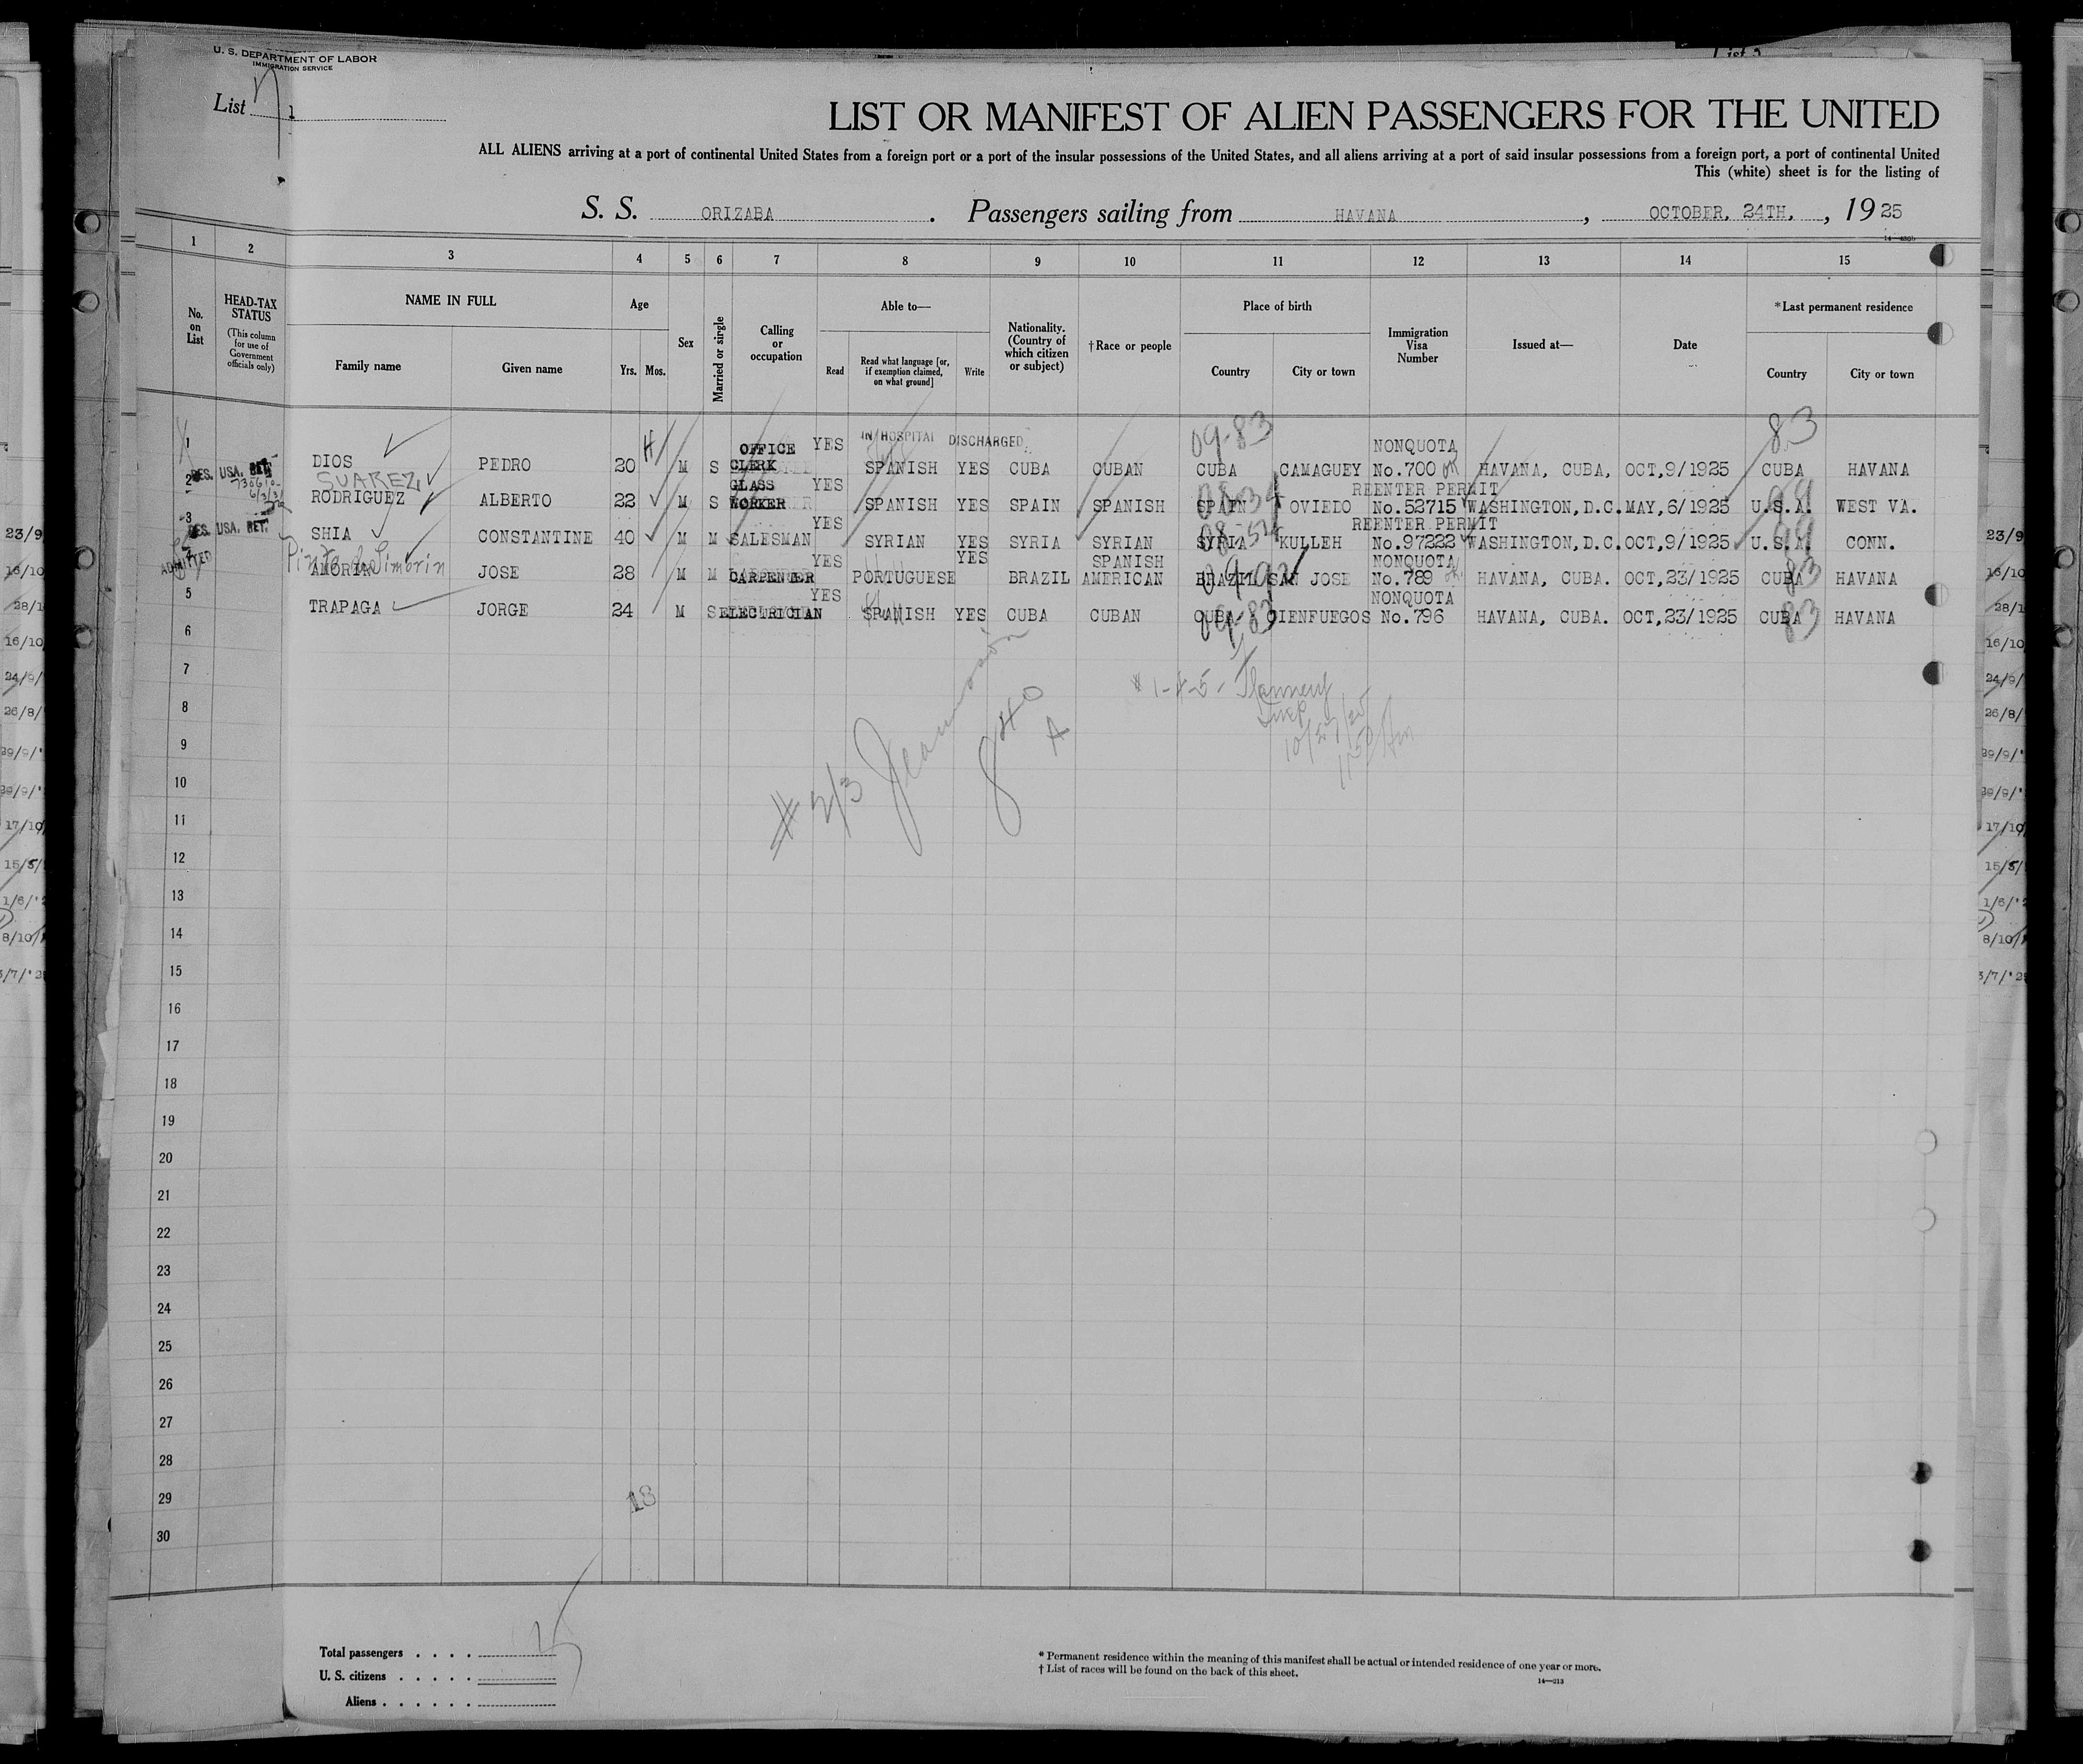 U. S. DEPARTMENT OF LABOR
IMMIGRATION SERVICE
List 1
LIST OR MANIFEST OF ALIEN PASSENGERS FOR THE UNITED
ALL ALIENS arriving at a port of continental United States from a foreign port or a port of the insular possessions of the United States, and all aliens arriving at a port of said insular possessions from a foreign port, a port of continental United
This (white) sheet is for the listing of
S. S. ORIZABA. Passengers sailing from HAVANA, OCTOBER, 24TH, , 19 25
1 2 3 4 5 6 7 8 9 10 11 12 13 14 15
No. on List
HEAD-TAX STATUS (This column for use of Government officials only)
NAME IN FULL
Family name Given name
Age
Yrs. Mos.
Sex
Married or single
Calling or occupation
Able to—
Read Read what language [or, if exemption claimed, on what ground] Write
Nationality. (Country of which citizen or subject)
†Race or people
Place of birth
Country City or town
Immigration Visa Number
Issued at—
Date
*Last permanent residence
Country City or town
IN HOSPITAL DISCHARGED
09-83 83
1 DIOS PEDRO 20 M S OFFICE CLERK YES SPANISH YES CUBA CUBAN CUBA CAMAGUEY NONQUOTA No.700 HAVANA, CUBA, OCT,9/1925 CUBA HAVANA
RES. USA. RET.
SUAREZ
2 RODRIGUEZ ALBERTO 22 M S GLASS WORKER YES SPANISH YES SPAIN SPANISH SPAIN OVIEDO REENTER PERMIT No.52715 WASHINGTON,D.C. MAY,6/1925 U.S.A. WEST VA.
RES. USA. RET.
3 SHIA CONSTANTINE 40 M M SALESMAN YES SYRIAN YES SYRIA SYRIAN SYRIA KULLEH REENTER PERMIT No.97222 WASHINGTON,D.C. OCT,9/1925 U.S.A. CONN.
ADMITTED
4 AMORIN JOSE 28 M M CARPENTER YES PORTUGUESE YES BRAZIL SPANISH AMERICAN BRAZIL SAN JOSE NONQUOTA No.789 HAVANA, CUBA. OCT,23/1925 CUBA 83 HAVANA
5 TRAPAGA JORGE 24 M S ELECTRICIAN YES SPANISH YES CUBA CUBAN CUBA 09-83 CIENFUEGOS NONQUOTA No.796 HAVANA, CUBA. OCT,23/1925 CUBA 83 HAVANA
6
7
8
9
10
11
12
13
14
15
16
17
18
19
20
21
22
23
24
25
26
27
28
29
30
# 2/3
840
A
# 1-4-5-
18
Total passengers
U. S. citizens
Aliens
* Permanent residence within the meaning of this manifest shall be actual or intended residence of one year or more.
† List of races will be found on the back of this sheet.
14—213